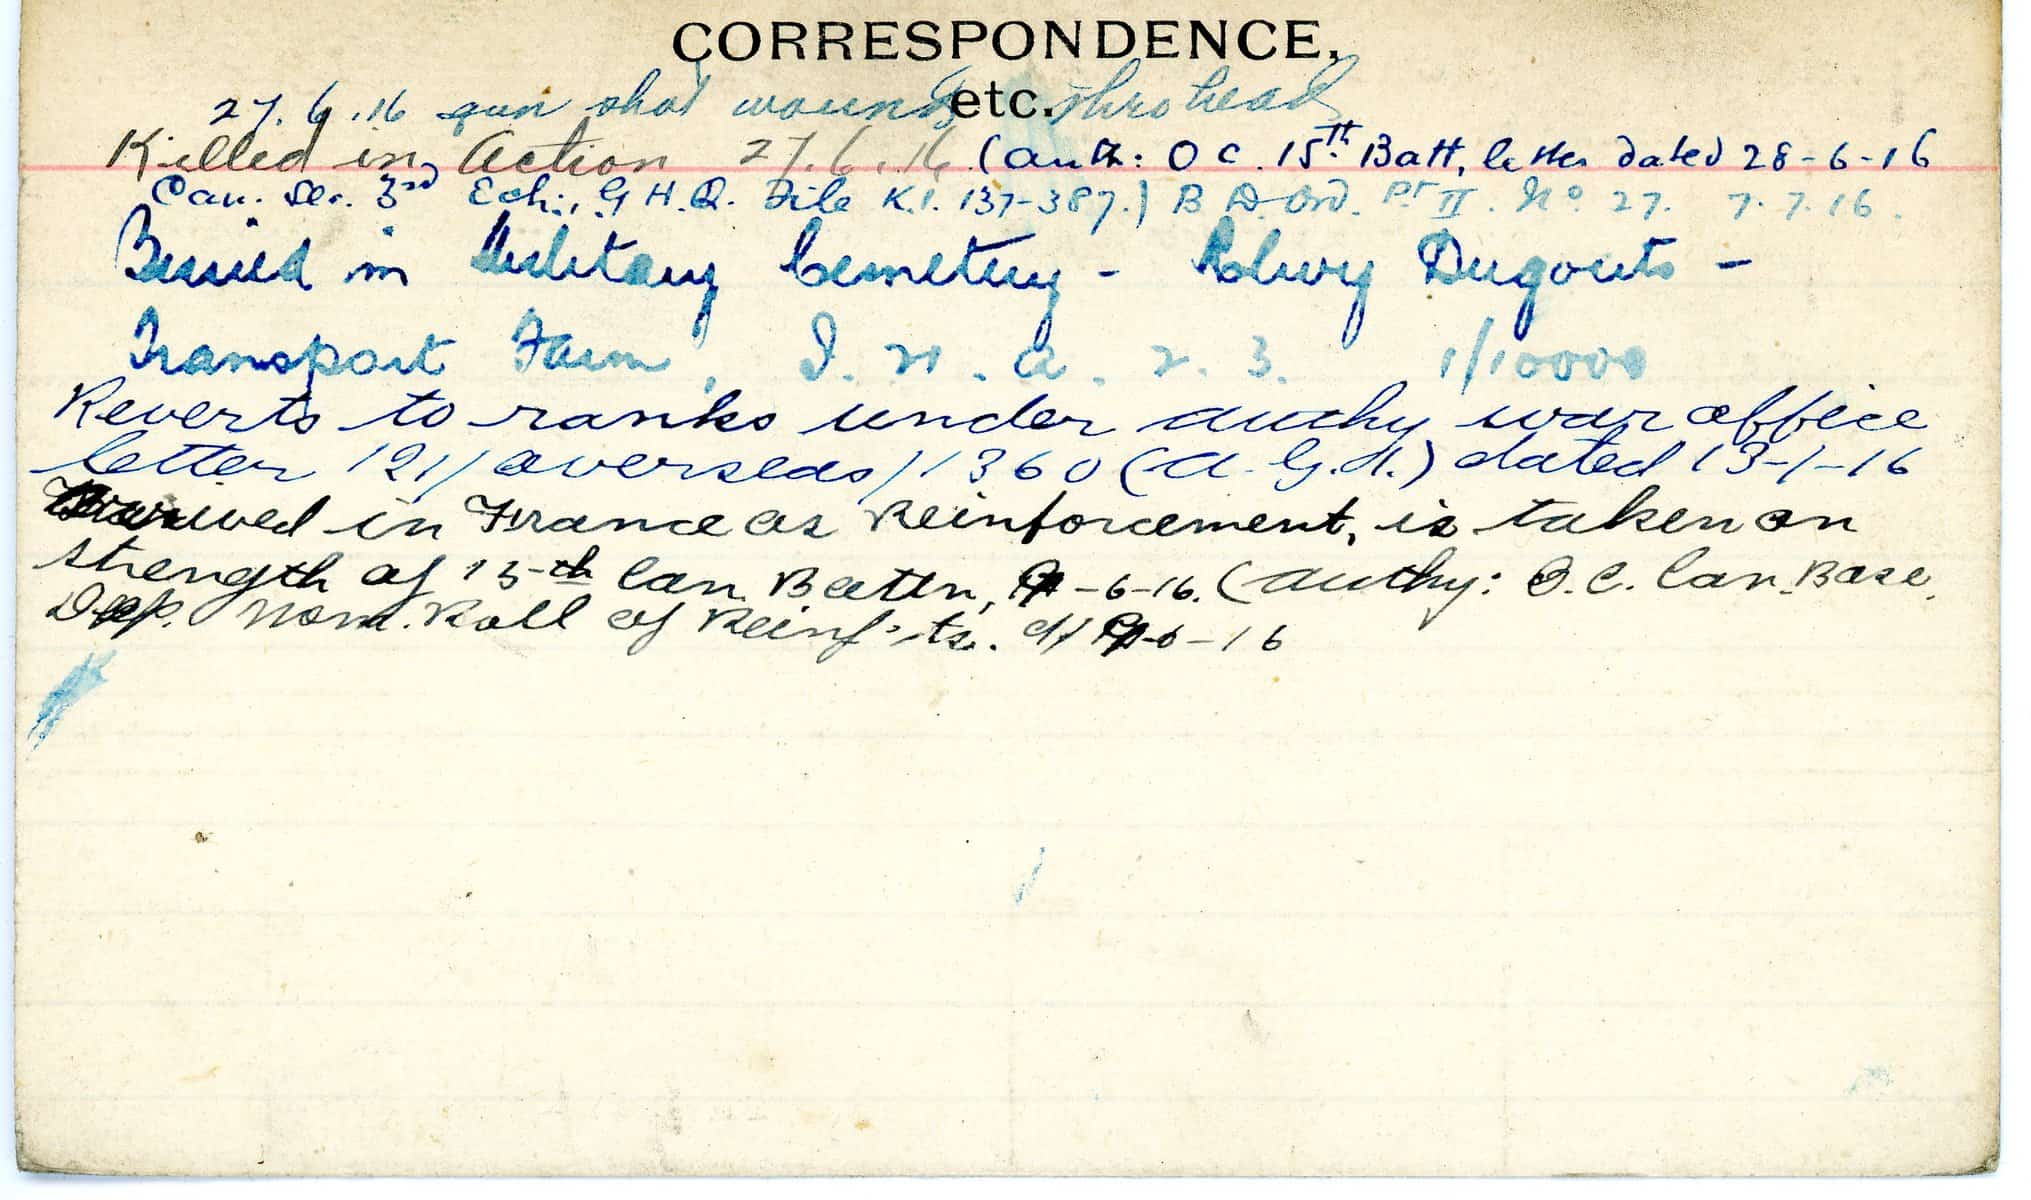 CORRESPONDENCE,
etc.
27.6.16 gun shot wounds thro head
Killed in Action 27.6.16 (auth: O C. 15th Batt, letter dated 28-6-16
Can. Sec. 3rd Ech:, G H.Q. File K.1. 137-387.) B D. Ord. Pt II. No. 27. 7.7.16.
Buried in Military Cemetery - Rlwy Dugouts -
Transport Farm, I. 21. a. 2. 3. 1/10000
Reverts to ranks under authy war office
letter 121/overseas/1360 (A.G.1.) dated 13-1-16
Arrived in France as Reinforcement, is taken on
strength of 15th Can Battn, -6-16. (authy: O.C. Can. Base
Dep. Nom. Roll of Reinf'ts. d/ -6-16